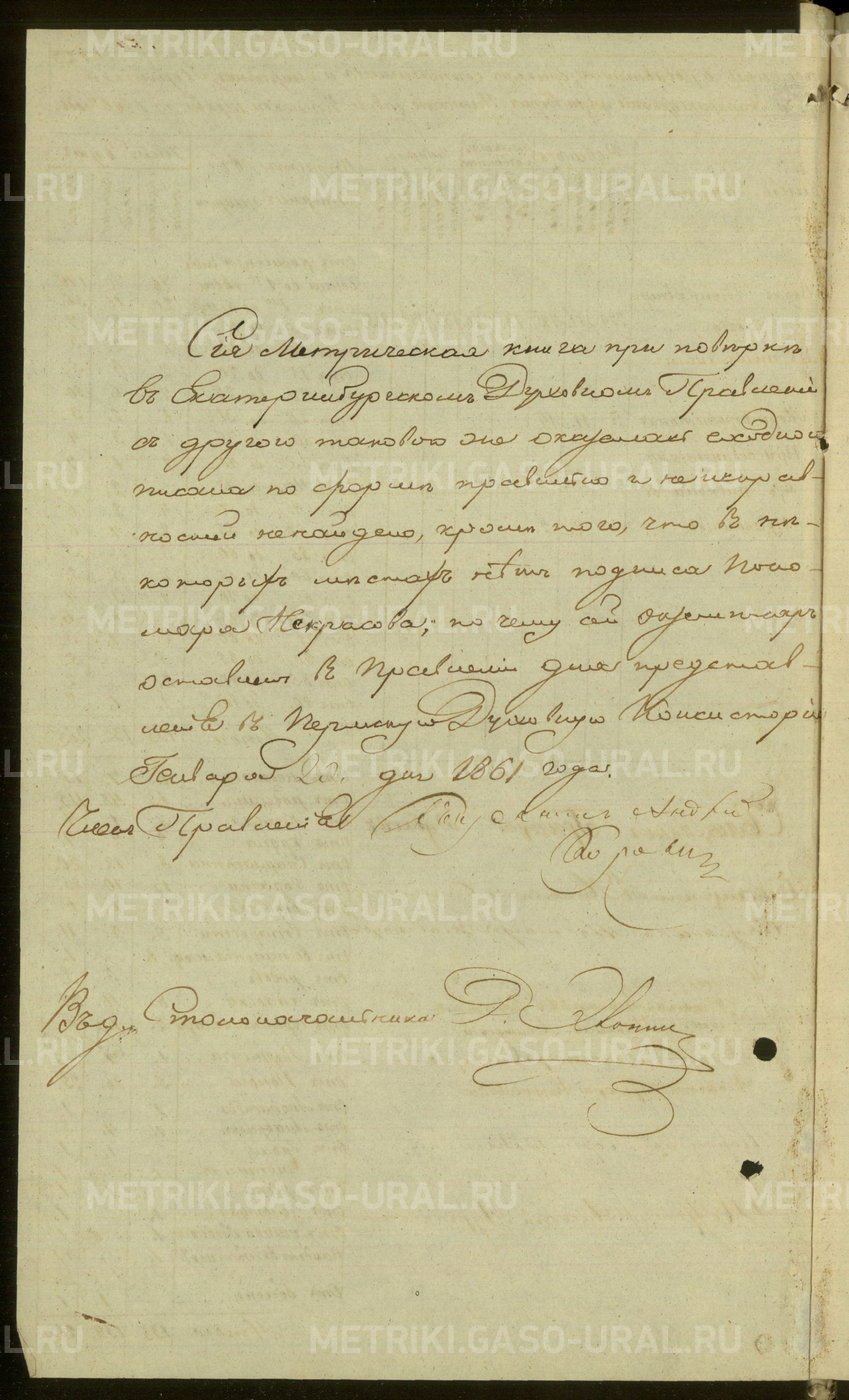 Сія Метрическая книга при повѣркѣ
въ Екатеринбургскомъ Духовномъ Правленіи
съ другою таковою же оказалась сходною
писана по формѣ правильно и неисправ-
ностей ненайдено, кромѣ того, что въ нѣ-
которыхъ мѣстахъ нѣтъ подписа Поно-
маря Некрасова; по чему сей экземпляръ
оставленъ въ Правленіи для представ-
ленія въ Пермскую Духовную Консисторію
Генваря 20 дня 1861 года.
Членъ Правленія Священникъ Андрей
Въ д. Столоначальника
METRIKI.GASO-URAL.RU